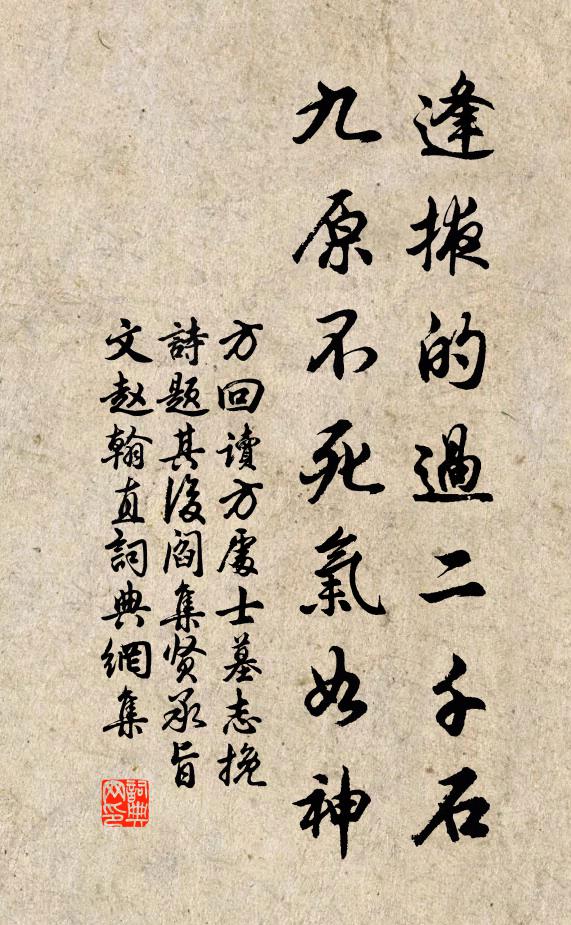 逢掖的過二千石
九原不死氣如神
方回讀方處士墓志挽
詩題其後閻集賢承旨
文趙翰直詞典網集
詞典
网印